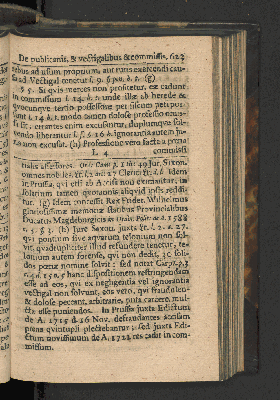 De publicanis, & vectigalibus & commissis. 623
rebus ad usum proprium, aut ruris exercendi cau-
sa ad Vectigal tenetur l. 9. §
§ 5. Si quis merces non profitetur, eæ cadunt
in commissum l. 14. h. t. unde illæ ab herede &
quocunque tertio possessore per fiscum petі pos-
sunt l. 14 h. t. modo tamen dolose professio omis-
sa sit, errantes enim excusantur, duplumque sol-
vendo liberantur l. f. § 16 h. ignorantia autem ju-
ris non excusat. (h) Professione vero facta a pœna
L. 4 commissi
triales assessores. 49 Jur. Saxon.
omnes nobiles l. 27 Idem
in Prussia, qui etsi ab Accis non eximantur, in
solarium tamen quotannis aliquid ipsis reddi-
tur. (g) Idem concessit Rex Frider. Wilhelmus
gloriosissimæ memoriæ statibus Provincialibus
Ducatus Magdeburgici 1588
t. 5. § 3. (h) Jure Saxon. juxta l. 2. a. 27.
qui pontium sive aquarum telonium non sol-
vit, quadrupliciter illud refundere tenetur, te-
lonium autem forense, qui non dedit, 30 soli-
dos pœnæ nomine solvit: sed notat Carpz. p. 3
hanc dispositionem restringendam
esse ad eos, qui ex negligentia vel ignorantia
vectigal non solvunt, eos vero, qui fraudulen-
& dolose peccant, arbitrarie, puta carcere, mul-
cta esse puniendos. In Prussia juxta Edictum
de A. 1715 d. 16 Nov. defraudantes accisam
pœna quintupli plectebantur; sed juxta Edi-
ctum novissimum de A. 1722 res cadit in com-
missum.